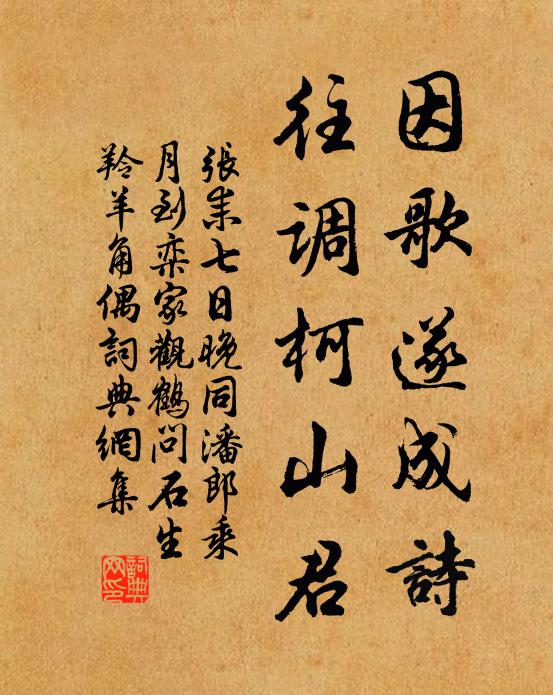 因歌遂成詩
往調柯山君
張耒七日晚同潘郎乘
月到栾家觀鶴問石生
羚羊角偶詞典網集
詞典網印